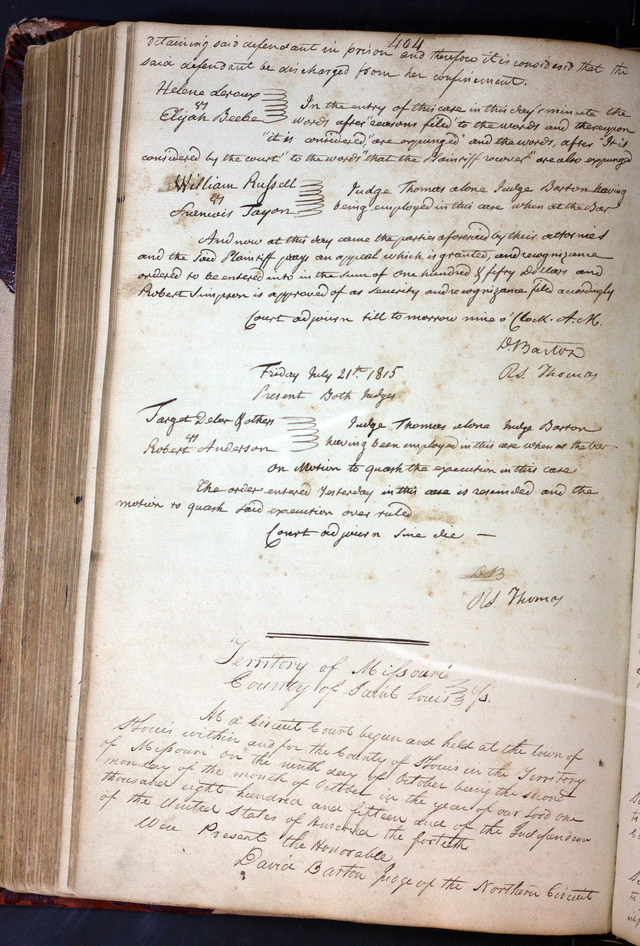 404
detaining said defendant in prison and therefore it is considered that the
said defendant be discharged from her confinement.
Helene Leroux
vs
Elijah Beebe
In the entry of this case in this day's minute the
words after "reasons filed" to the words and thereupon
"it is considered" are expunged and the words, after "It is
considered by the court" to the words "that the Plaintiff recover" are also expunged
William Russell
vs
Francois Tayon
Judge Thomas alone Judge Barton having
being employed in this case when at the Bar
And now at this day came the parties aforesaid by their attornies
and the said Plaintiff prays an appeal which is granted, and recognizance
ordered to be entered into in the sum of one hundred & fifty Dollars and
Robert Simpson is approved of as security and recognizance filed accordingly
Court adjourn till tomorrow nine o'Clock. A.M.
D Barton
Rd. Thomas
Friday July 21st. 1815
Present Both Judges
Target Delor & others
vs
Robert Anderson
Judge Thomas alone Judge Barton
having been employed in this case when at the bar
on Motion to quash the execution in this case
The order entered Yesterday in this case is rescinded and the
motion to quash said execution over ruled
Court adjourn Sine die —
D B
Rd. Thomas
Territory of Missouri
County of Saint Louis } ss.
At a Circuit Court began and held at the town of
St Louis within and for the County of St Louis in the Territory
of Missouri on the ninth day of October being the second
monday of the month of October in the year of our Lord one
thousand eight hundred and fifteen and of the Independence
of the United States of America the fortieth
Were Present the Honorable
David Barton Judge of the Northern Circuit